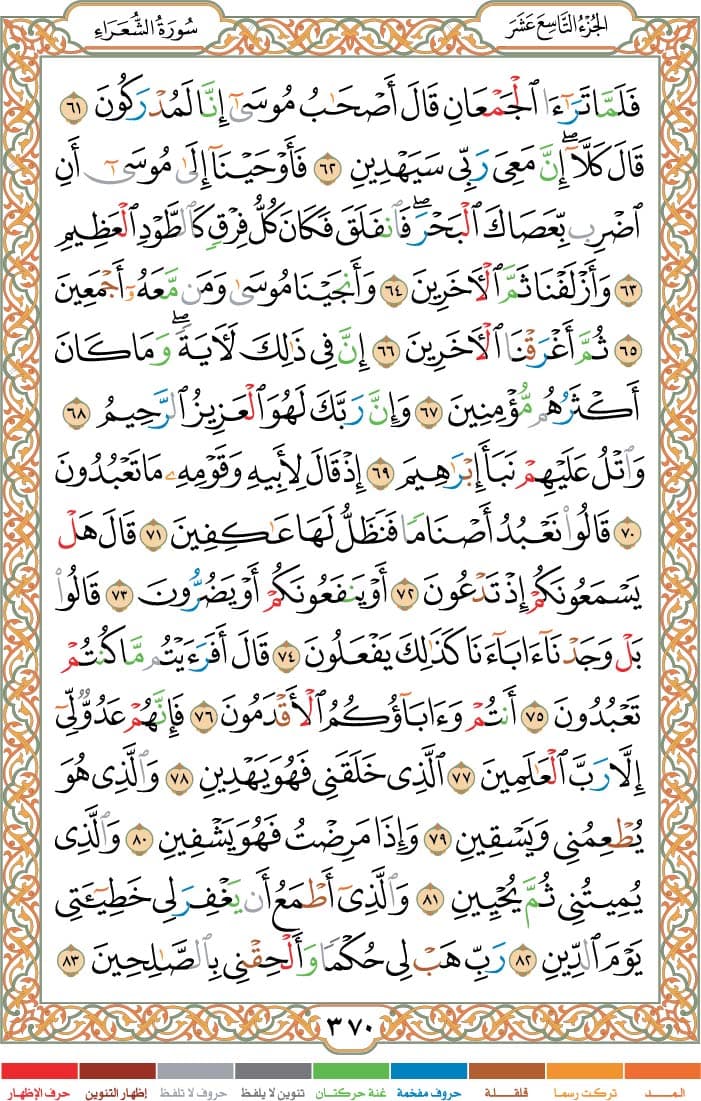 الجزء التاسع عشر
سورة الشعراء
فَلَمَّا تَرَٰٓءَا ٱلْجَمْعَانِ قَالَ أَصْحَٰبُ مُوسَىٰٓ إِنَّا لَمُدْرَكُونَ ٦١
قَالَ كَلَّآ ۖ إِنَّ مَعِىَ رَبِّى سَيَهْدِينِ ٦٢ فَأَوْحَيْنَآ إِلَىٰ مُوسَىٰٓ أَنِ
ٱضْرِب بِّعَصَاكَ ٱلْبَحْرَ ۖ فَٱنفَلَقَ فَكَانَ كُلُّ فِرْقٍ كَٱلطَّوْدِ ٱلْعَظِيمِ
٦٣ وَأَزْلَفْنَا ثَمَّ ٱلْـَٔاخَرِينَ ٦٤ وَأَنجَيْنَا مُوسَىٰ وَمَن مَّعَهُۥٓ أَجْمَعِينَ
٦٥ ثُمَّ أَغْرَقْنَا ٱلْـَٔاخَرِينَ ٦٦ إِنَّ فِى ذَٰلِكَ لَـَٔايَةً ۖ وَمَا كَانَ
أَكْثَرُهُم مُّؤْمِنِينَ ٦٧ وَإِنَّ رَبَّكَ لَهُوَ ٱلْعَزِيزُ ٱلرَّحِيمُ ٦٨
وَٱتْلُ عَلَيْهِمْ نَبَأَ إِبْرَٰهِيمَ ٦٩ إِذْ قَالَ لِأَبِيهِ وَقَوْمِهِۦ مَا تَعْبُدُونَ
٧٠ قَالُوا۟ نَعْبُدُ أَصْنَامًا فَنَظَلُّ لَهَا عَٰكِفِينَ ٧١ قَالَ هَلْ
يَسْمَعُونَكُمْ إِذْ تَدْعُونَ ٧٢ أَوْ يَنفَعُونَكُمْ أَوْ يَضُرُّونَ ٧٣ قَالُوا۟
بَلْ وَجَدْنَآ ءَابَآءَنَا كَذَٰلِكَ يَفْعَلُونَ ٧٤ قَالَ أَفَرَءَيْتُم مَّا كُنتُمْ
تَعْبُدُونَ ٧٥ أَنتُمْ وَءَابَآؤُكُمُ ٱلْأَقْدَمُونَ ٧٦ فَإِنَّهُمْ عَدُوٌّ لِّىٓ
إِلَّا رَبَّ ٱلْعَٰلَمِينَ ٧٧ ٱلَّذِى خَلَقَنِى فَهُوَ يَهْدِينِ ٧٨ وَٱلَّذِى هُوَ
يُطْعِمُنِى وَيَسْقِينِ ٧٩ وَإِذَا مَرِضْتُ فَهُوَ يَشْفِينِ ٨٠ وَٱلَّذِى
يُمِيتُنِى ثُمَّ يُحْيِينِ ٨١ وَٱلَّذِىٓ أَطْمَعُ أَن يَغْفِرَ لِى خَطِيٓـَٔتِى
يَوْمَ ٱلدِّينِ ٨٢ رَبِّ هَبْ لِى حُكْمًا وَأَلْحِقْنِى بِٱلصَّٰلِحِينَ ٨٣
٣٧٠
المــــد تركت رسما قلقـــلة حروف مفخمة غنة حركتان تنوين لا يلفظ حروف لا تلفظ إظهار التنوين حرف الإظهار